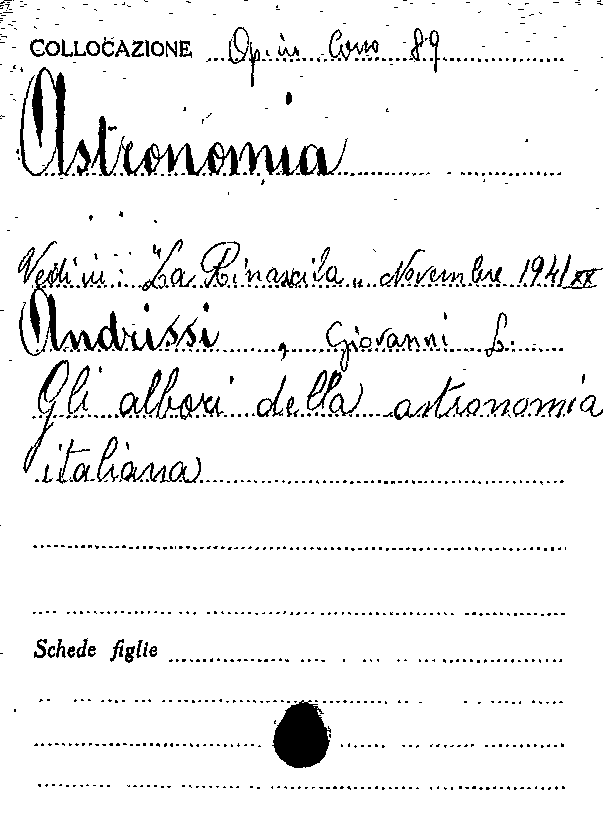 COLLOCAZIONE Op. in Corso 89
Astronomia
Vedi in: "La Rinascita„ Novembre 1941/XX
Andrissi, Giovanni L.
Gli albori della astronomia
italiana
Schede figlie